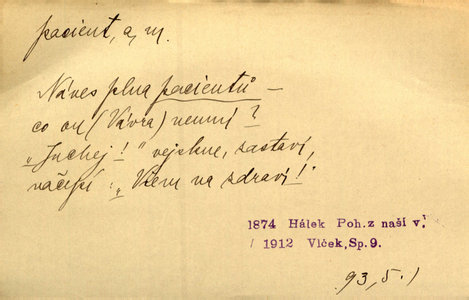 pacient, a, m.
Náves plna pacientů —
co on (Vávra) neumí?
„Juchej!“ vejskne, zastaví,
: „Všem na zdraví!“
1874 Hálek Poh. z naší v.
1912 Vlček, Sp. 9.
93, 5.